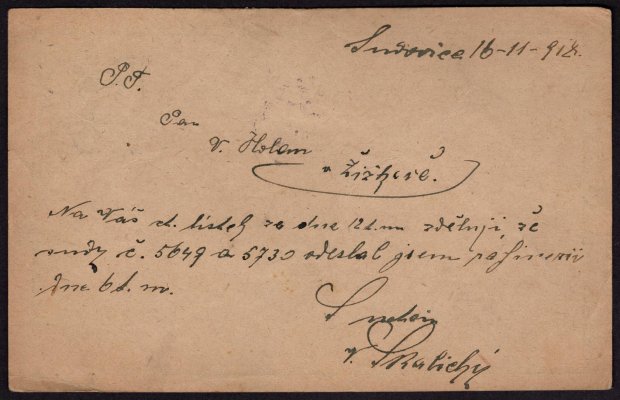 Sudovice 16-11-918.
P.T.
Pan
V. Holan
v Žižkově.
Na Váš ct. lístek ze dne 12 t.m. zděluji, že
sudy č. 5649 a 5730 odeslal jsem rafinerii
dne 6 t. m.
S úctou
V. Skalický